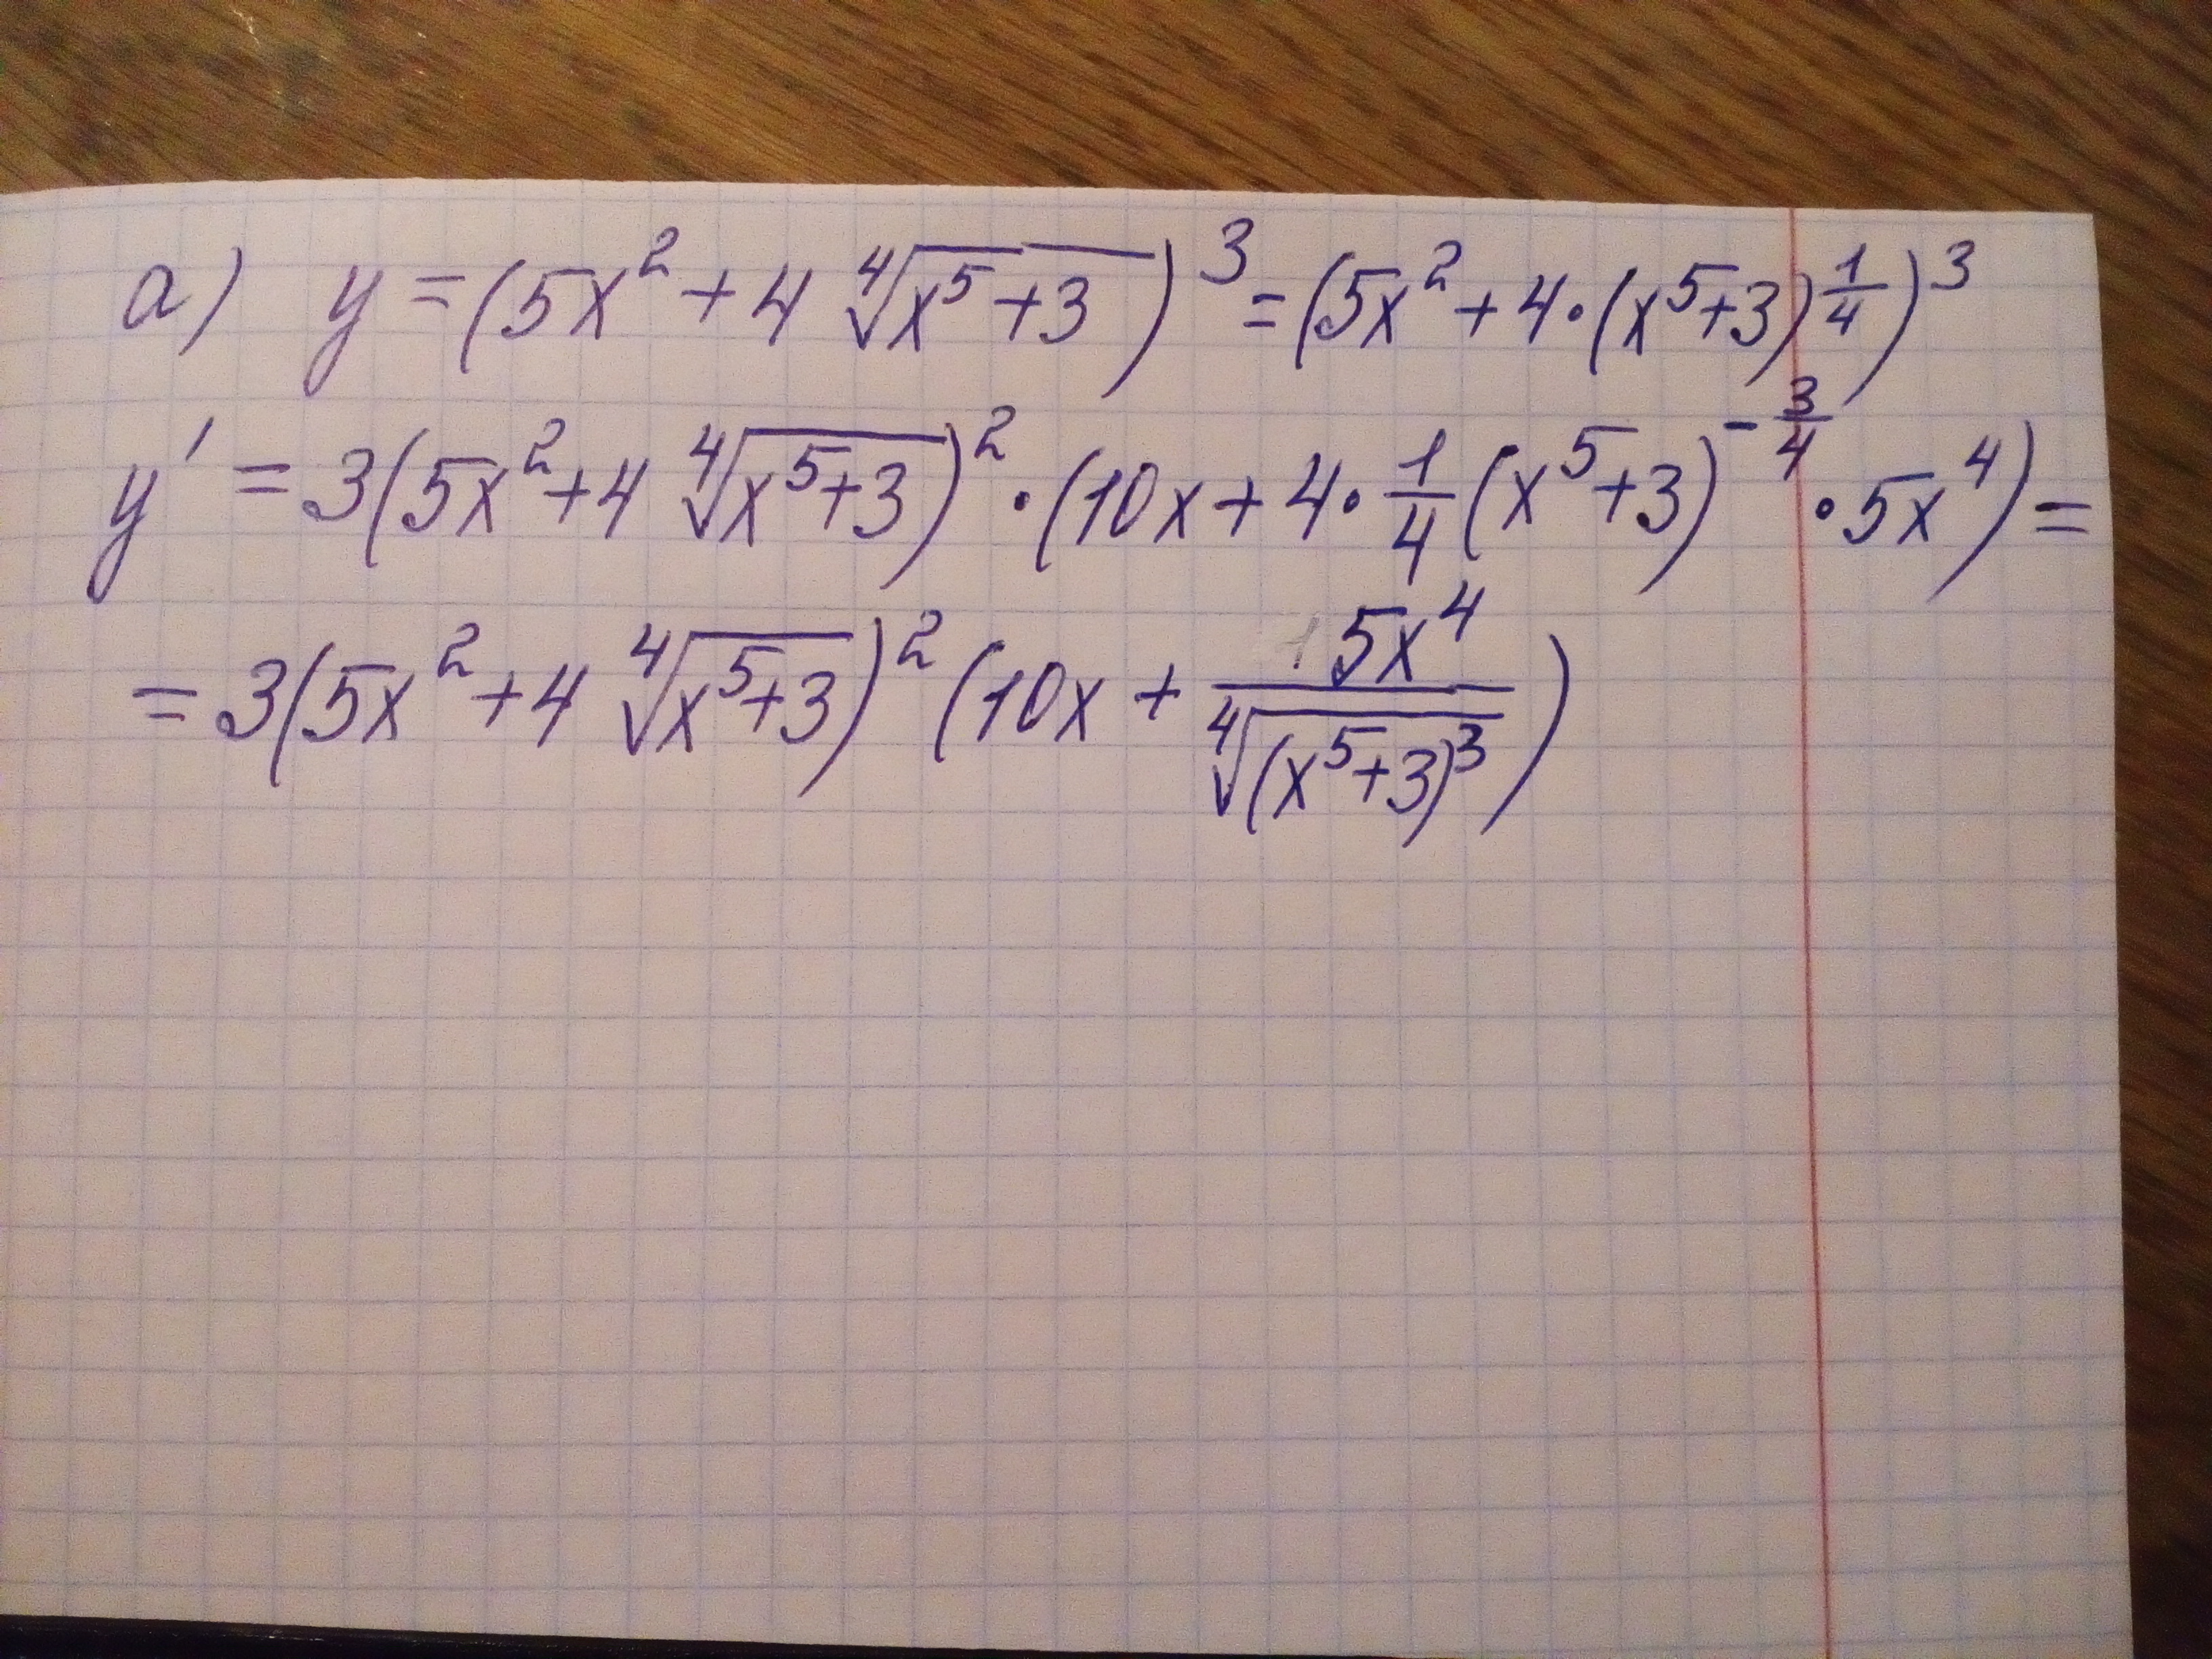 а) y = (5x² + 4 ∜(x⁵+3))³ = (5x² + 4·(x⁵+3)^(1/4))³
y' = 3(5x² + 4 ∜(x⁵+3))² · (10x + 4 · 1/4 (x⁵+3)^(-3/4) · 5x⁴) =
= 3(5x² + 4 ∜(x⁵+3))² (10x + 5x⁴/∜((x⁵+3)³))